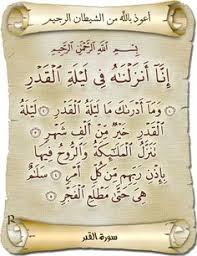 أعوذ بالله من الشيطان الرجيم
بِسْمِ اللَّهِ الرَّحْمَٰنِ الرَّحِيمِ
إِنَّا أَنزَلْنَٰهُ فِى لَيْلَةِ الْقَدْرِ
۝ وَمَا أَدْرَىٰكَ مَا لَيْلَةُ الْقَدْرِ ۝ لَيْلَةُ
الْقَدْرِ خَيْرٌ مِّنْ أَلْفِ شَهْرٍ
۝ تَنَزَّلُ الْمَلَٰٓئِكَةُ وَالرُّوحُ فِيهَا
بِإِذْنِ رَبِّهِم مِّن كُلِّ أَمْرٍ ۝ سَلَٰمٌ
هِىَ حَتَّىٰ مَطْلَعِ الْفَجْرِ ۝
سورة القدر